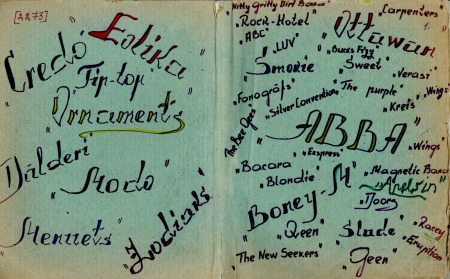 [3273]
Credo"
Eolika
Tip-top
"Ornaments"
Dālderi
"Modo"
Menuets"
"Zodiaks"
Nitty Gritty Dirt Band"
"Carpenters"
"Rock-Hotel"
"ABC"
Ottawan
"LUV"
"Smokie"
Sweet"
"Verasi"
"Fonogrāfs"
"Silver Convention"
"The purple"
"Wings"
"Krets"
"The Bee Gees"
"ABBA"
"Wings
"Expgress"
"Bacara
"Blondie"
Magnetic Band
Boney-M"
"Doors
"Racey
"Qeen"
Slade"
"Eruption"
"The New Seekers"
Geen"